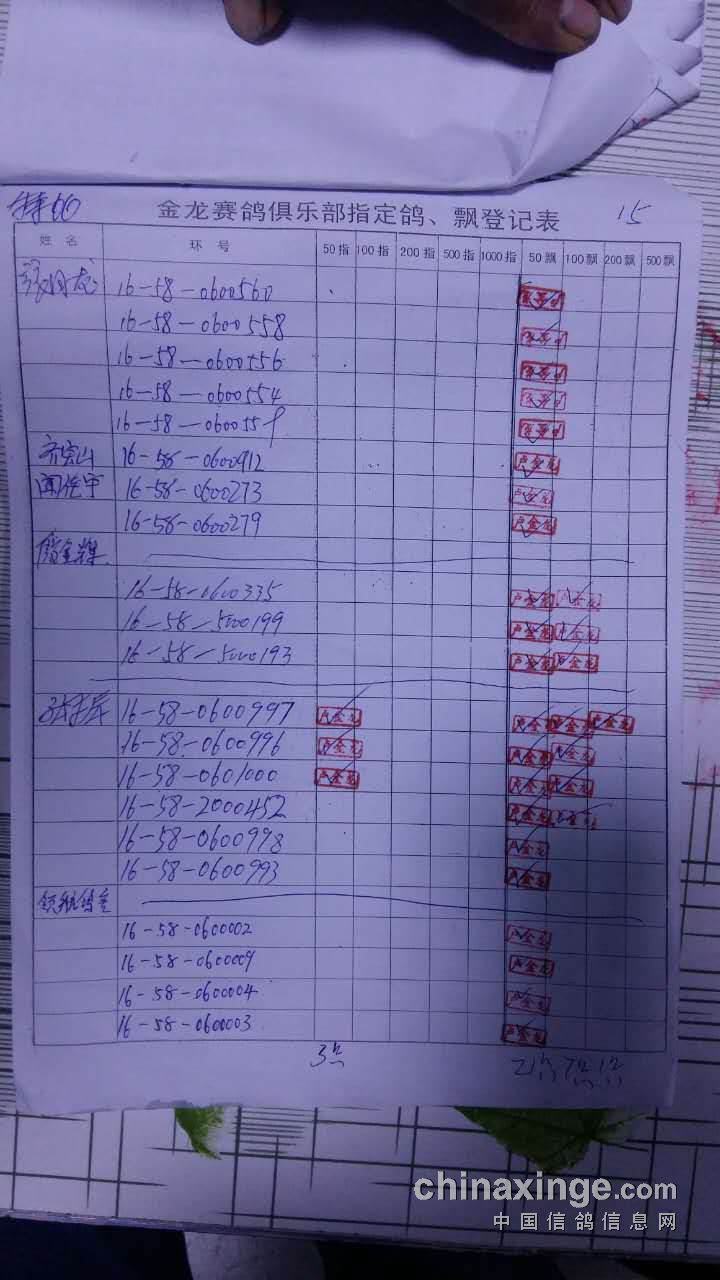 金龙赛鸽俱乐部指定鸽、飘登记表 15
姓 名 环 号 50指 100指 200指 500指 1000指 50飘 100飘 200飘 500飘
16-58-0600560
16-58-0600558
16-58-0600556
16-58-0600554
16-58-060055
16-58-0600912 卢金龙
16-58-0600273 卢金龙
16-58-0600279 卢金龙
16-58-0600335 卢金龙 卢金龙
16-58-5000199 卢金龙 卢金龙
16-58-5000193 卢金龙 卢金龙
16-58-0600997 卢金龙 卢金龙 卢金龙 卢金龙
16-58-0600996 卢金龙 卢金龙 卢金龙
16-58-0601000 卢金龙 卢金龙 卢金龙
16-58-2000452 卢金龙
16-58-0600998 卢金龙
16-58-0600993 卢金龙
16-58-0600002 卢金龙
16-58-0600009 卢金龙
16-58-0600004 卢金龙
16-58-0600003 卢金龙
3点 21点 7点 1点
chinaxinge.com
中国信鸽信息网